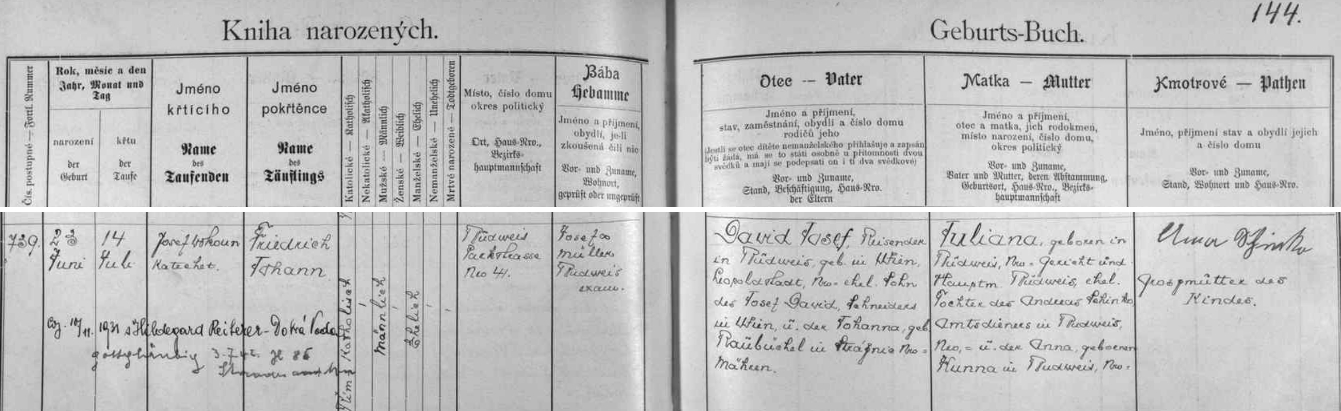 144.
Kniha narozených.
Geburts-Buch.
Čís. postupné — Fortl. Nummer
Rok, měsíc a den
Jahr, Monat und
Tag
narození
der
Geburt
křtu
der
Taufe
Jméno
křtícího
Name
des
Taufenden
Jméno
pokřtěnce
Name
des
Täuflings
Katolické — Katholisch
Nekatolické — Akatholisch
Mužské — Männlich
Ženské — Weiblich
Manželské — Ehelich
Nemanželské — Unehelich
Mrtvě narozené — Todtgeboren
Místo, číslo domu
okres politický
Ort, Haus-Nro.,
Bezirks-
hauptmannschaft
Bába
Hebamme
Jméno a příjmení,
obydlí, je-li
zkoušená čili nic
Vor- und Zuname,
Wohnort,
geprüft oder ungeprüft
Otec — Vater
Jméno a příjmení,
stav, zaměstnání, obydlí a číslo domu
rodičů jeho
(Jestli se otec dítěte nemanželského přihlašuje a zapsán
býti žádá, má se to státi osobně u přítomnosti dvou
svědků a mají se podepsati on i ti dva svědkové)
Vor- und Zuname,
Stand, Beschäftigung, Haus-Nro.
der Eltern
Matka — Mutter
Jméno a příjmení,
otec a matka, jich rodokmen,
místo narození, číslo domu,
okres politický
Vor- und Zuname,
Vater und Mutter, deren Abstammung,
Geburtsort, Haus-Nro., Bezirks-
hauptmannschaft
Kmotrové — Pathen
Jméno, příjmení stav a obydlí jejich
a číslo domu
Vor- und Zuname,
Stand, Wohnort und Haus-Nro.
739.
23
Juni
14
Juli
Josef
Katechet.
Friedrich
Johann
Römisch Katholisch
Männlich
Ehelich
Budweis
Parkstrasse
Nro 4.
Josefa
Müller
Budweis
exam.
David Josef, Reisender
in Budweis, geb. in Wien,
Leopoldstadt, Nro - ehel. Sohn
des Josef David, Schneiders
in Wien, u. der Johanna, geb
in Nro -
Mähren.
Juliana, geboren in
Budweis, Nro - Gericht und
Hauptm Budweis, ehel.
Tochter des Andreas Schinko
Amtsdieners in Budweis,
Nro, - u. der Anna, geborenen
Kunna in Budweis, Nro -
Anna Schinko
Grossmutter des
Kindes.
1931 s Hildegard Reiterer - Dobrá Voda
3.7.42